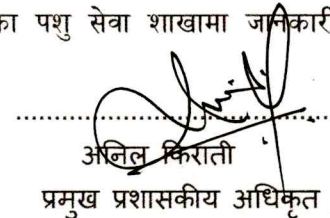 का पशु सेवा शाखामा जानकारी
....................................
अनिल किराती
प्रमुख प्रशासकीय अधिकृत